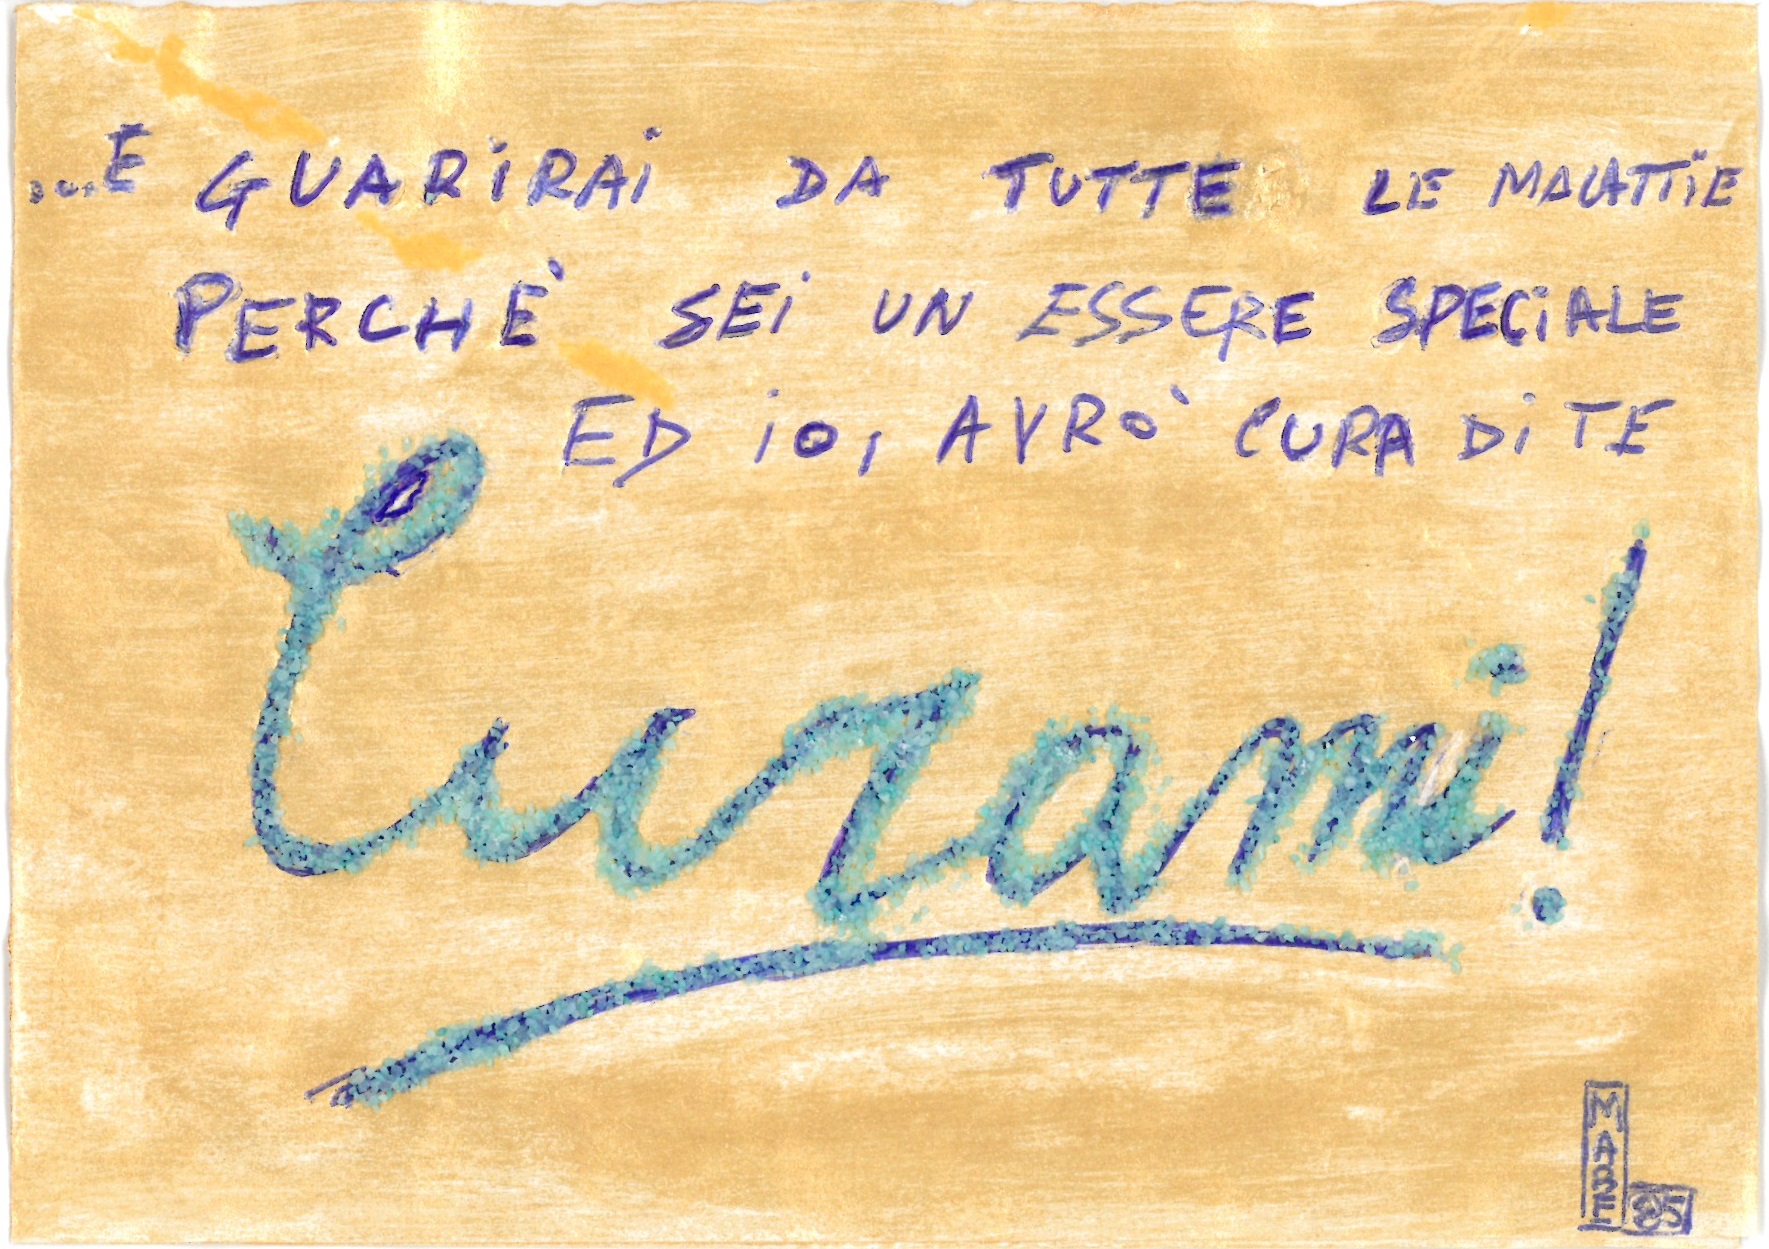 ...E GUARiRAi DA TUTTE LE MALATTiE
PERCHÈ SEi UN ESSERE SPECiALE
ED iO, AVRÒ CURA Di TE
Curami!
MARE